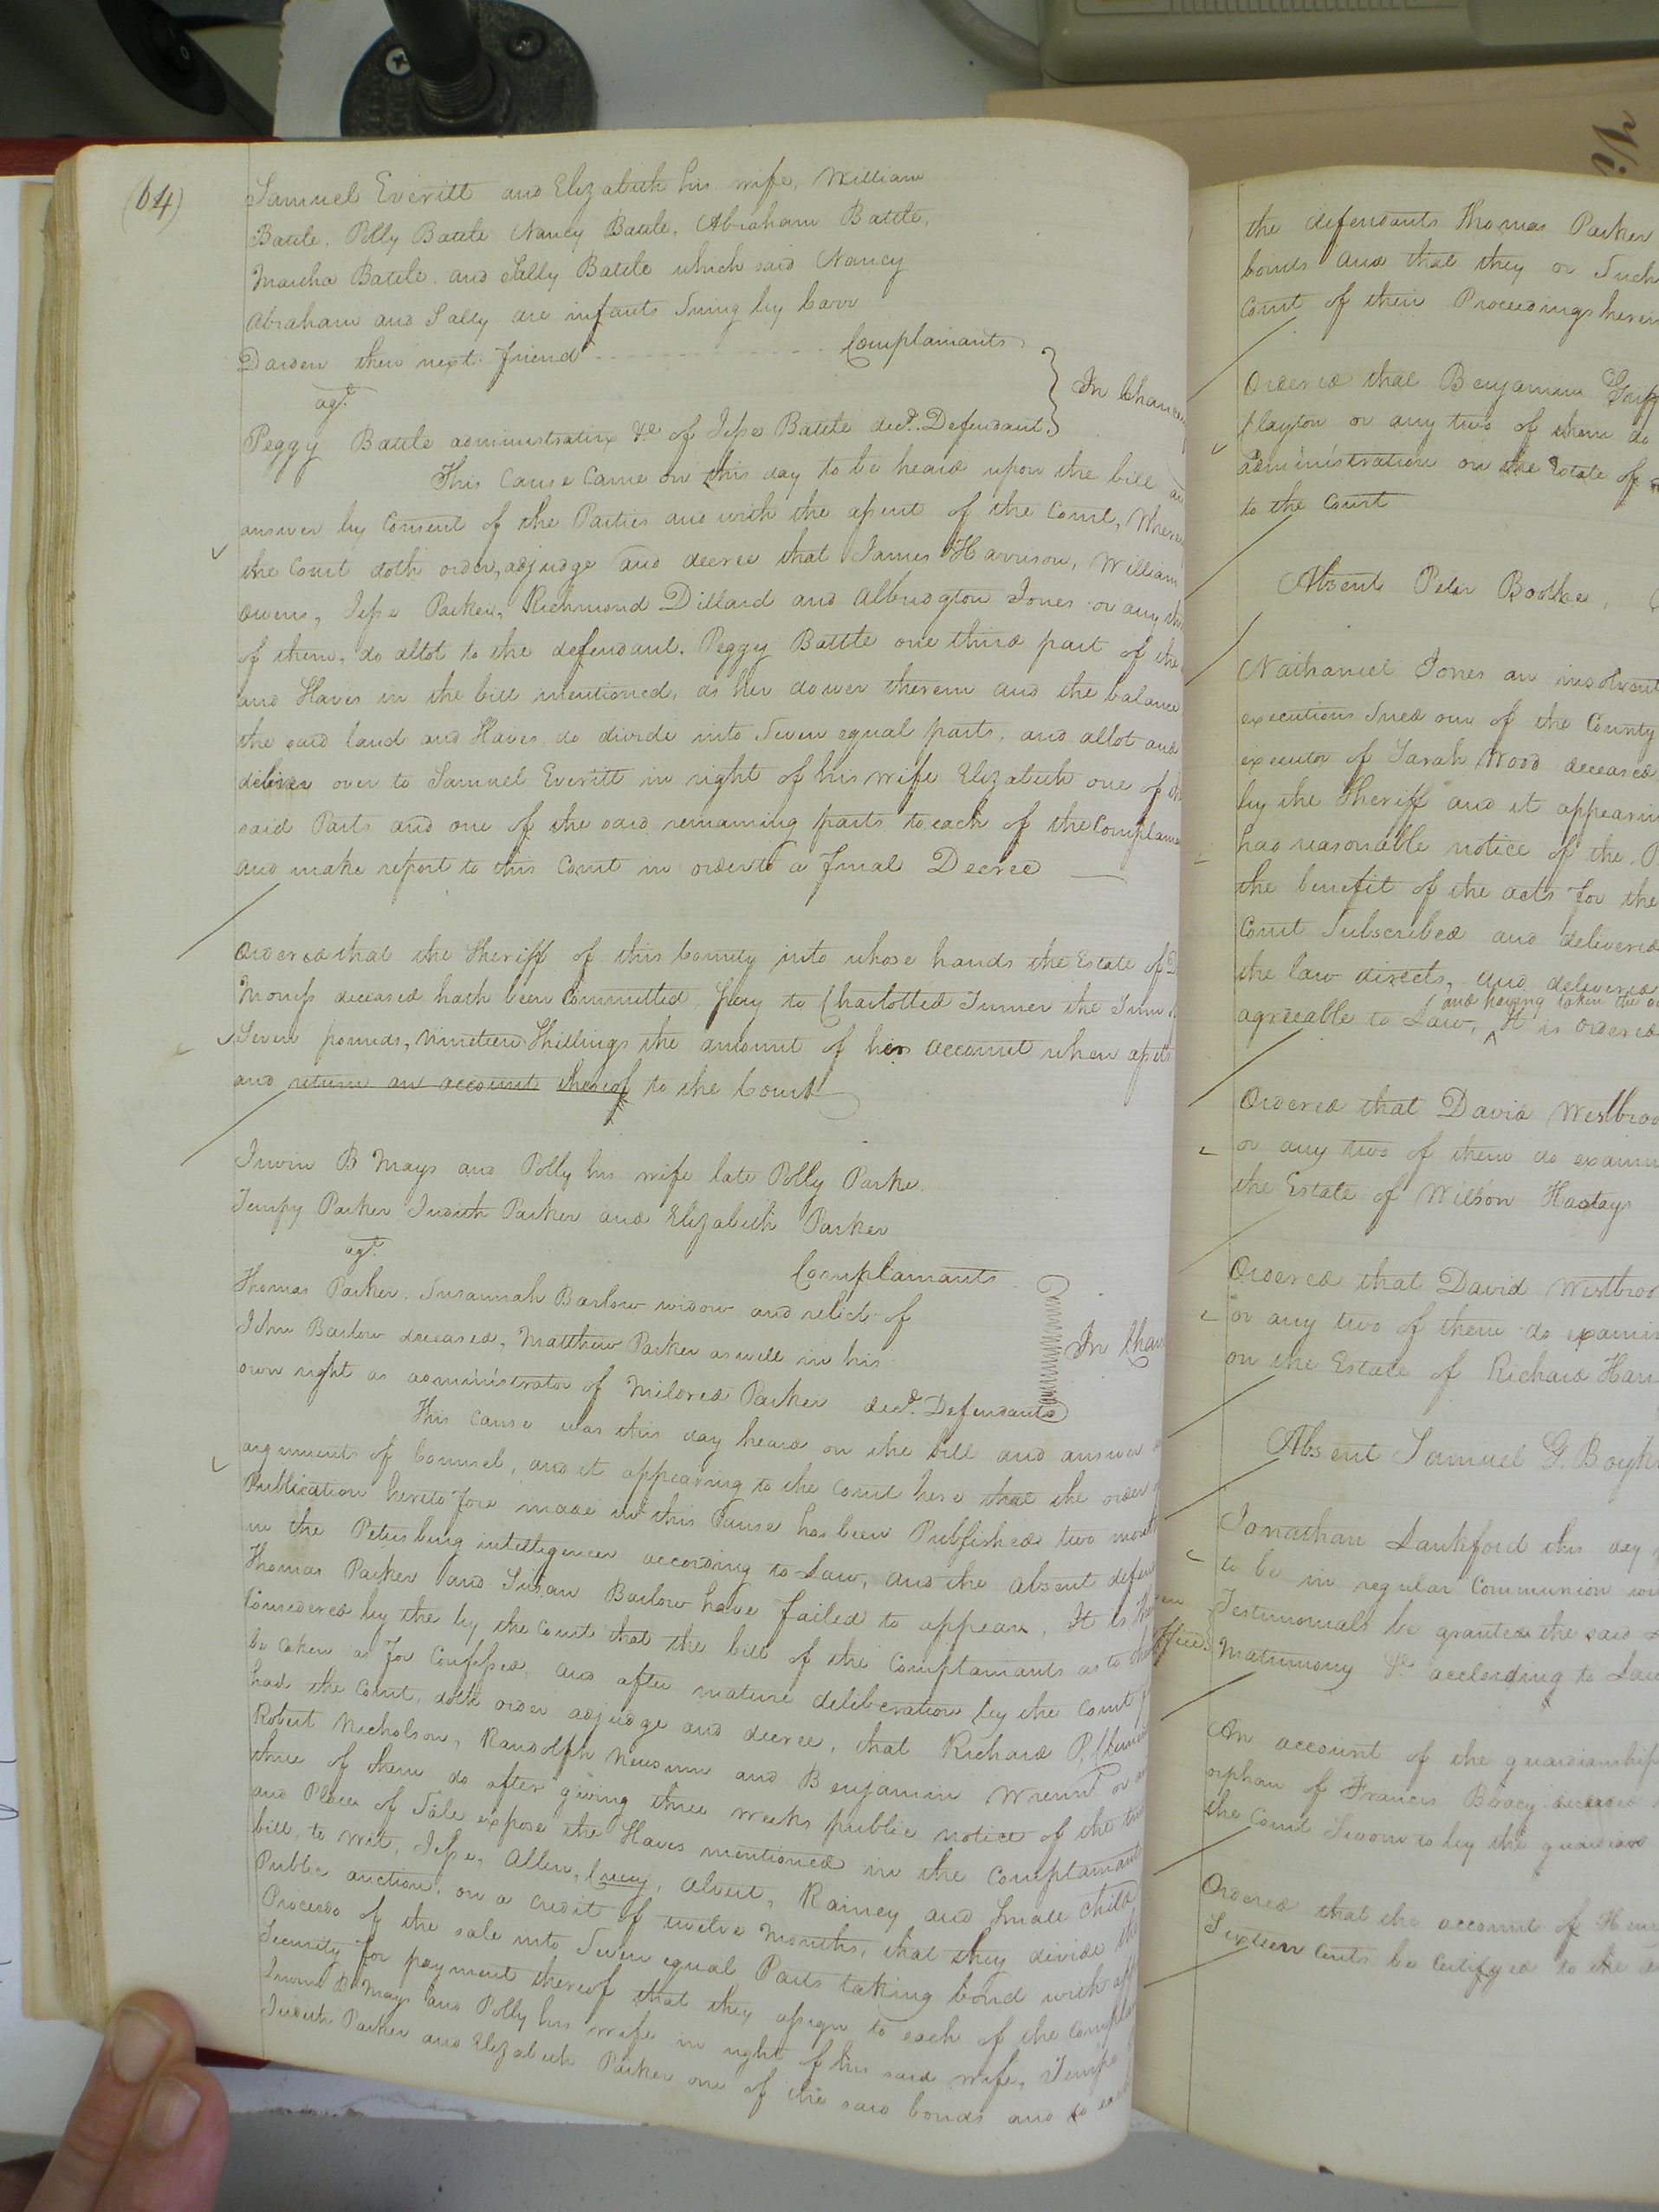 (64)
Samuel Everitt and Elizabeth his wife, William
Battle, Polly Battle Nancy Battle, Abraham Battle,
Martha Battle, and Sally Battle which said Nancy
Abraham and Sally are infants Suing by Carr
Darden their next friend Complainants
agt.
Peggy Battle administratrix &c of Jesse Battle decd. Defendant } In Chancery
This Cause Came on this day to be heard upon the bill
answer by Consent of the Parties and with the assent of the Court,
the Court doth order, adjudge and decree that James Harrison, William
Owens, Jesse Parker, Richmond Dillard and Albridgton Jones or any
of them, do allot to the defendant, Peggy Battle one third part of the
and Slaves in the bill mentioned, as her dower therein and the balance
the said land and Slaves do divide into Seven equal parts, and allot and
deliver over to Samuel Everitt in right of his wife Elizabeth one of
said Parts and one of the said remaining parts to each of the Complain
and make report to this Court in order to a final Decree
Ordered that the Sheriff of this County into whose hands the Estate of
deceased hath been Committed, pay to Charlotted Turner the Sum
Seven pounds, Nineteen Shillings the amount of her account when assets
and return an account thereof to the Court
Irwin B Mays and Polly his wife late Polly Parke
Tempy Parker Judith Parker and Elizabeth Parker
agt. Complainants
Thomas Parker, Susannah Barlow widow and relict of
John Barlow deceased, Matthew Parker as well in his
own right as administrator of Mildred Parker decd. Defendants } In Chan
This Cause was this day heard on the bill and answer
arguments of Counsel, and it appearing to the Court here that the order
Publication heretofore made in this Cause has been Published two
in the Petersburg intelligencer according to Law, and the absent defen
Thomas Parker and Susan Barlow have failed to appear, It is
Considered by the by the Court that the bill of the Complainants as to
be taken as for Confessed, and after mature deliberation by the Court
had the Court, doth order adjudge and decree, that Richard P.
Robert Nicholson, Randolph Newsum and Benjamin Wrenn or
three of them do after giving three weeks public notice of the
and Place of Sale expose the Slaves mentioned in the Complainant
bill, to wit, Jesse, Allen, Creecy, Albert, Rainey and Small child
Public auction, on a credit of twelve Months, that they divide
Proceeds of the sale into Seven equal Parts taking bond with
Security for payment thereof that they assign to each of the
Irwin B Mays and Polly his wife in right of his said wife,
Judith Parker and Elizabeth Parker one of the said bonds and to
the defendants Thomas Parker
bonds and that they or Such
Court of their Proceedings herein
Ordered that Benjamin
Clayton or any two of them do
administration on the Estate of
to the Court
Absent Peter Boothe,
Nathaniel Jones an insolvent
executions Sued out of the County
executor of Sarah Wood deceased
by the Sheriff and it appearing
had reasonable notice of the
the benefit of the acts for the
Court Subscribed and delivered
the law directs, and delivered
and having taken the
agreeable to Law, It is ordered
Ordered that David Westbroo
or any two of them do examine
the Estate of Wilson
Ordered that David Westbroo
or any two of them do examin
on the Estate of Richard
Absent Samuel G. Boyki
Jonathan Lankford this day
to be in regular Communion
Testimonials be granted the said
Matrimony &c according to Law
An account of the guardianship
orphan of Francis Bracy deceased
the Court Sworn to by the guardian
Ordered that the account of
Sixteen Cents be Certifyed to the